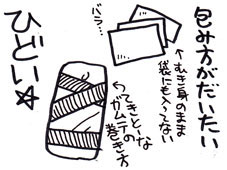 包み方がだいたい
ひどい☆
バラ…
↑むき身のまま
袋にも入ってない
てきとーな
ガムテの
巻き方